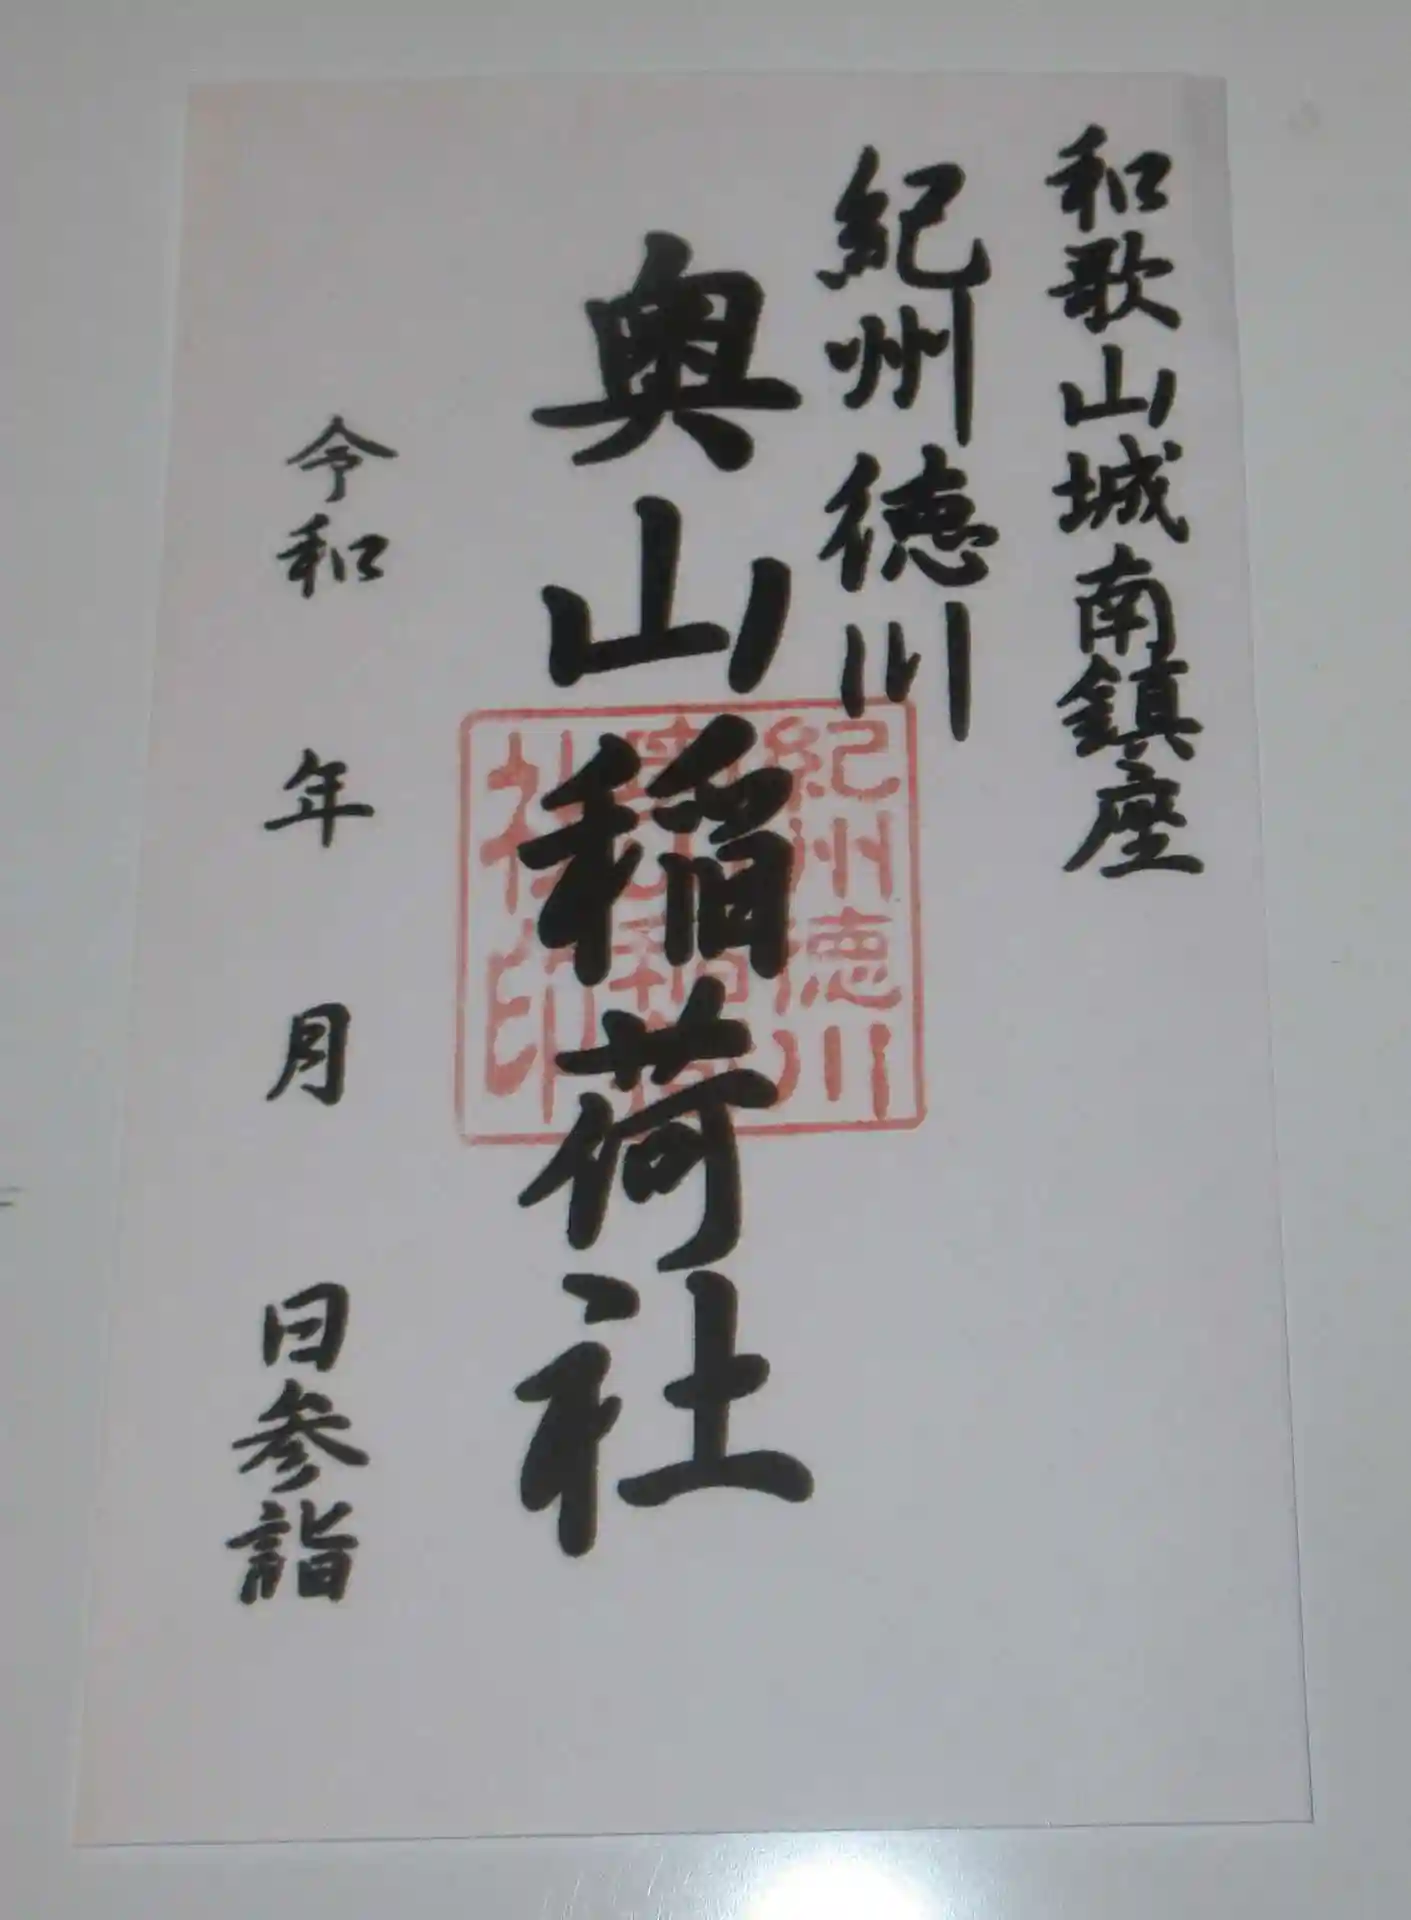 和歌山城南鎮座
紀州徳川
奥山稲荷社
令和　年　月　日参詣
紀州徳川
社印